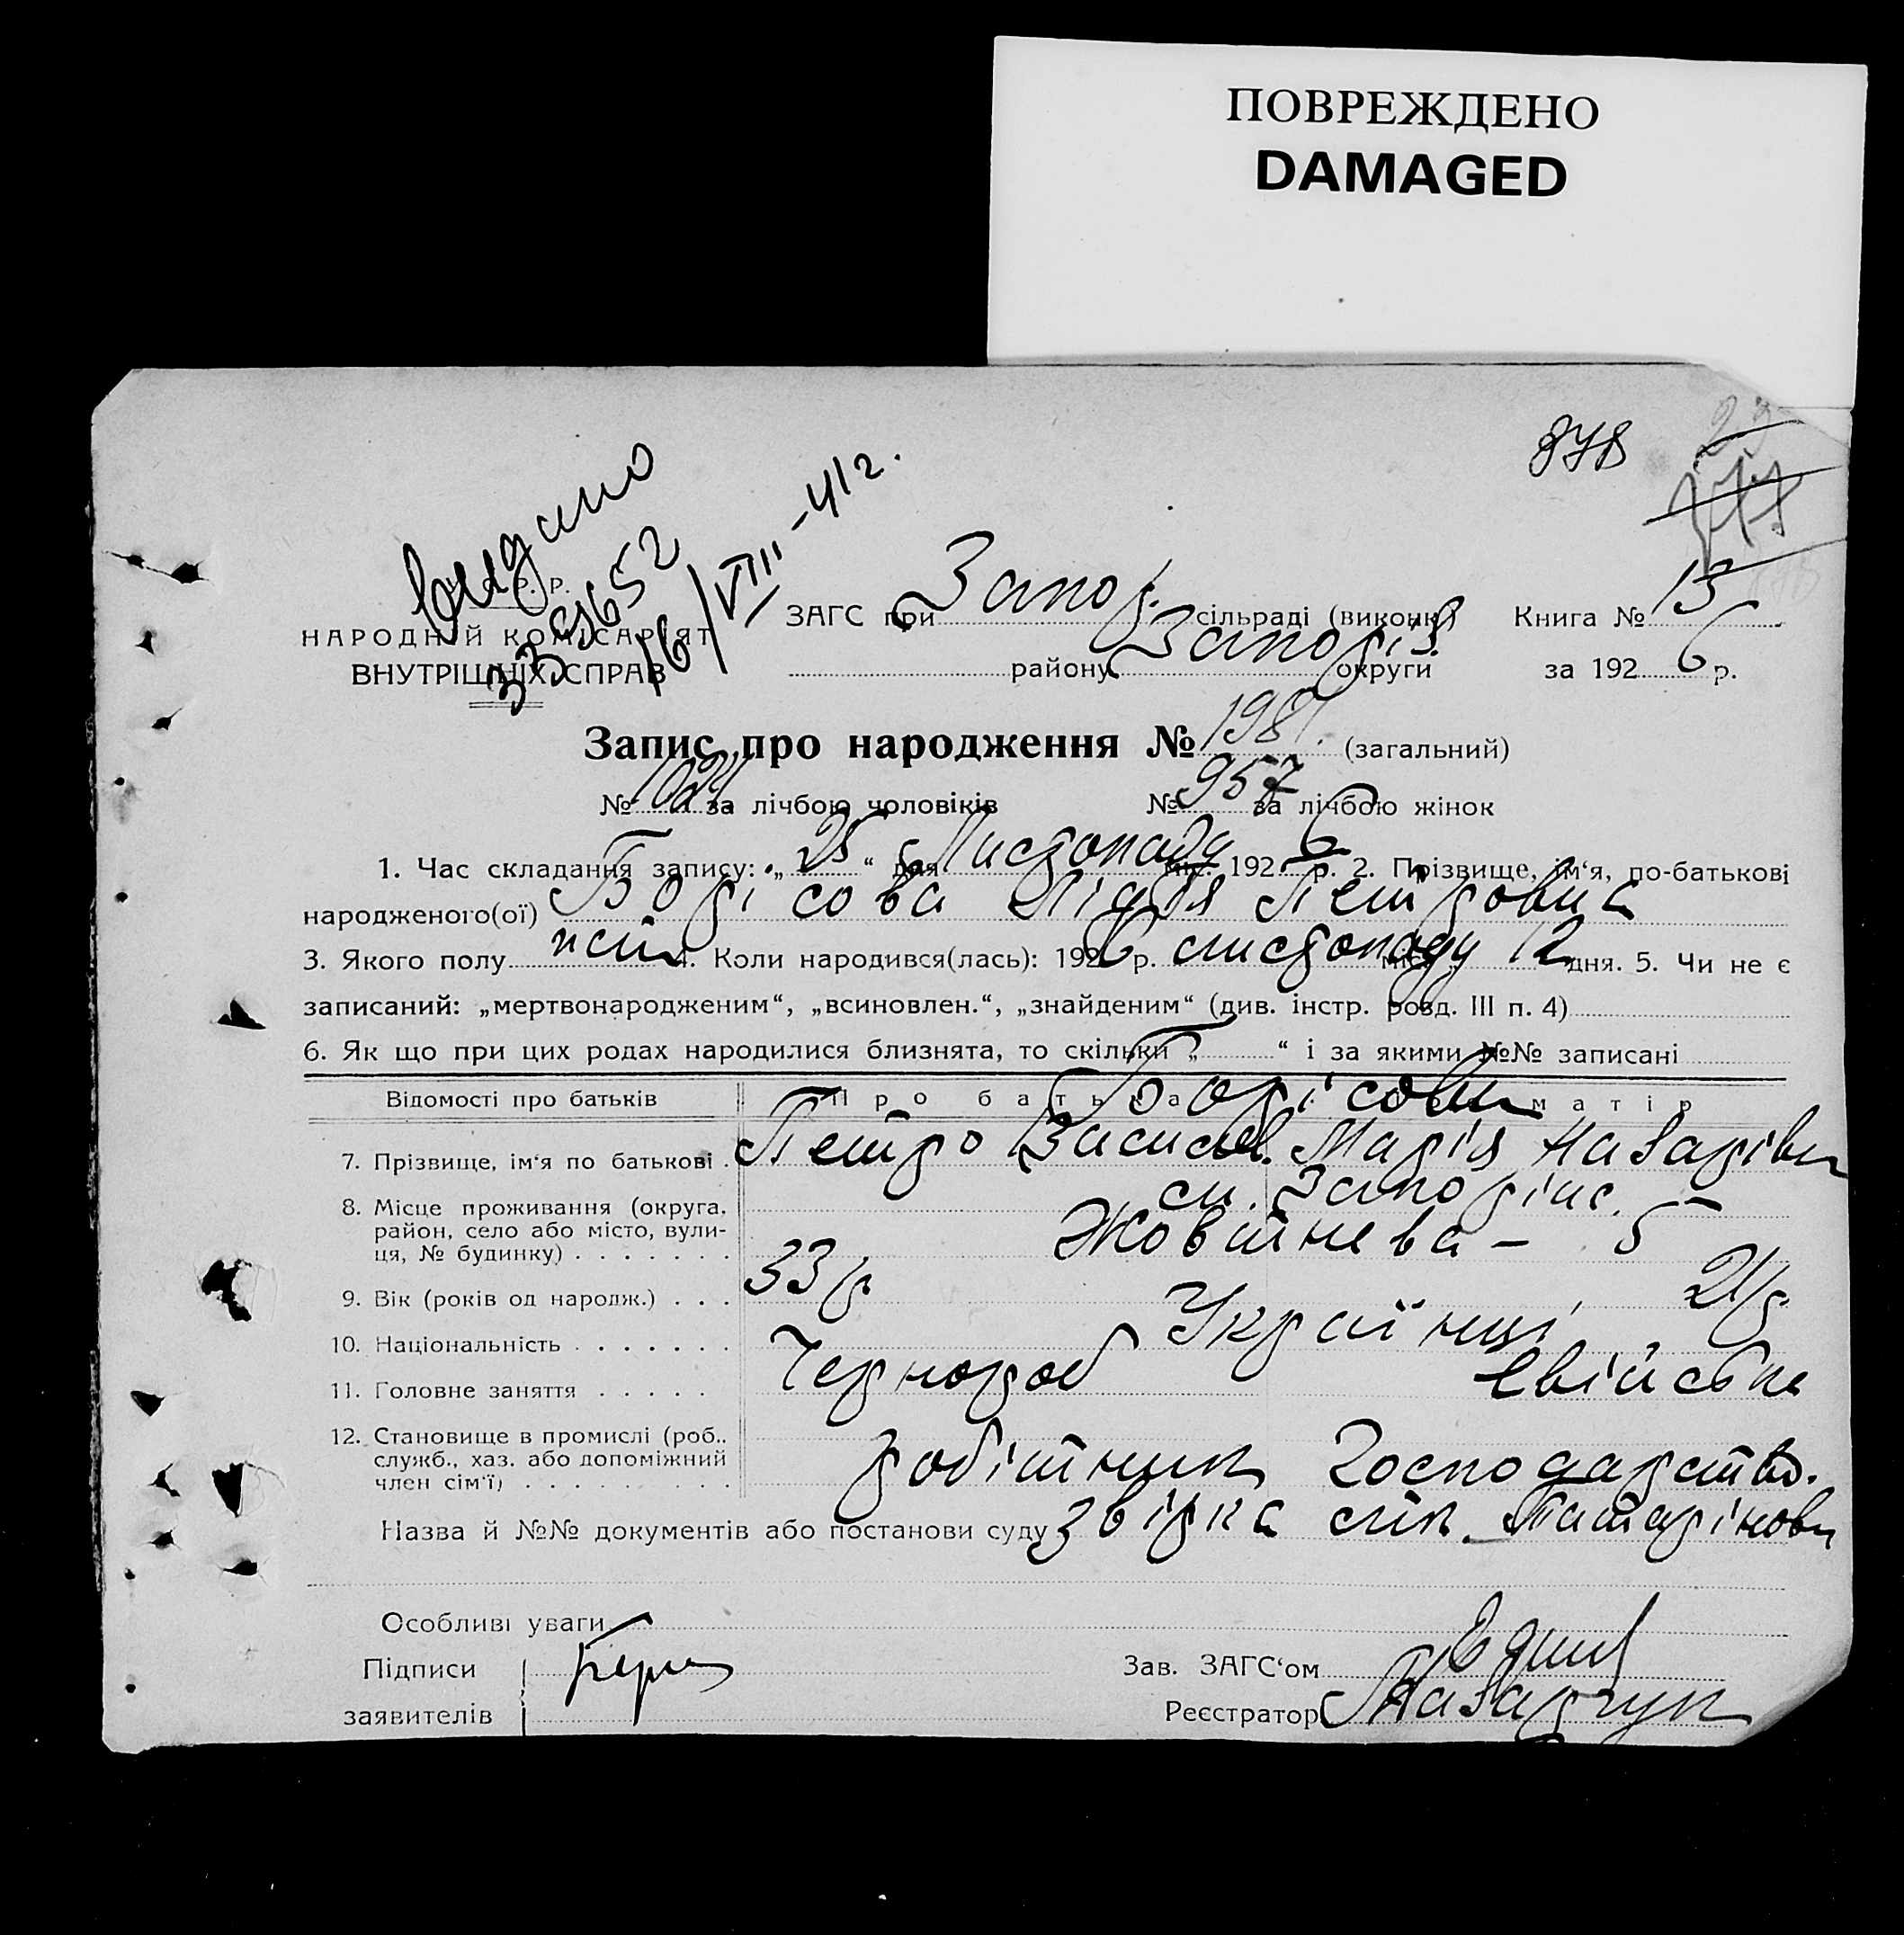 ПОВРЕЖДЕНО
DAMAGED
378
Видано
16/VIII-41 г.
НАРОДНИЙ КОМІСАРІЯТ
ВНУТРІШНІХ СПРАВ
ЗАГС при Запор. сільраді (виконк.) Книга № 13
району Запоріз. округи за 1926 р.
Запис про народження № 1981. (загальний)
№ 1024 за лічбою чоловіків № 957 за лічбою жінок
1. Час складання запису: „25“ дня Листопаду міс. 1926 р. 2. Прізвище, ім‘я, по-батькові
народженого(ої) Борісова Лідія Петровна
3. Якого полу жін 4. Коли народився(лась): 1926 р. листопаду міся 12 дня. 5. Чи не є
записаний: „мертвонародженим“, „всиновлен.“, „знайденим“ (див. інстр. розд. III п. 4)
6. Як що при цих родах народилися близнята, то скільки „ “ і за якими №№ записані
Відомості про батьків Про батька матір
Борісови
7. Прізвище, ім‘я по батькові Петро Васильов. Марія Назарівн
8. Місце проживання (округа, район, село або місто, вулиця, № будинку) м. Запоріж.
Жовтнева – 5
9. Вік (років од народж.) 33 р. 21 р.
10. Національність Українці
11. Головне заняття Чернороб Свійське
12. Становище в промислі (роб., служб., хаз. або допоміжний член сім‘ї) робітник Господарство.
Назва й №№ документів або постанови суду звірка лік. Татарінови
Особливі уваги
Підписи Зав. ЗАГС‘ом
заявителів Реєстратор Назарчук